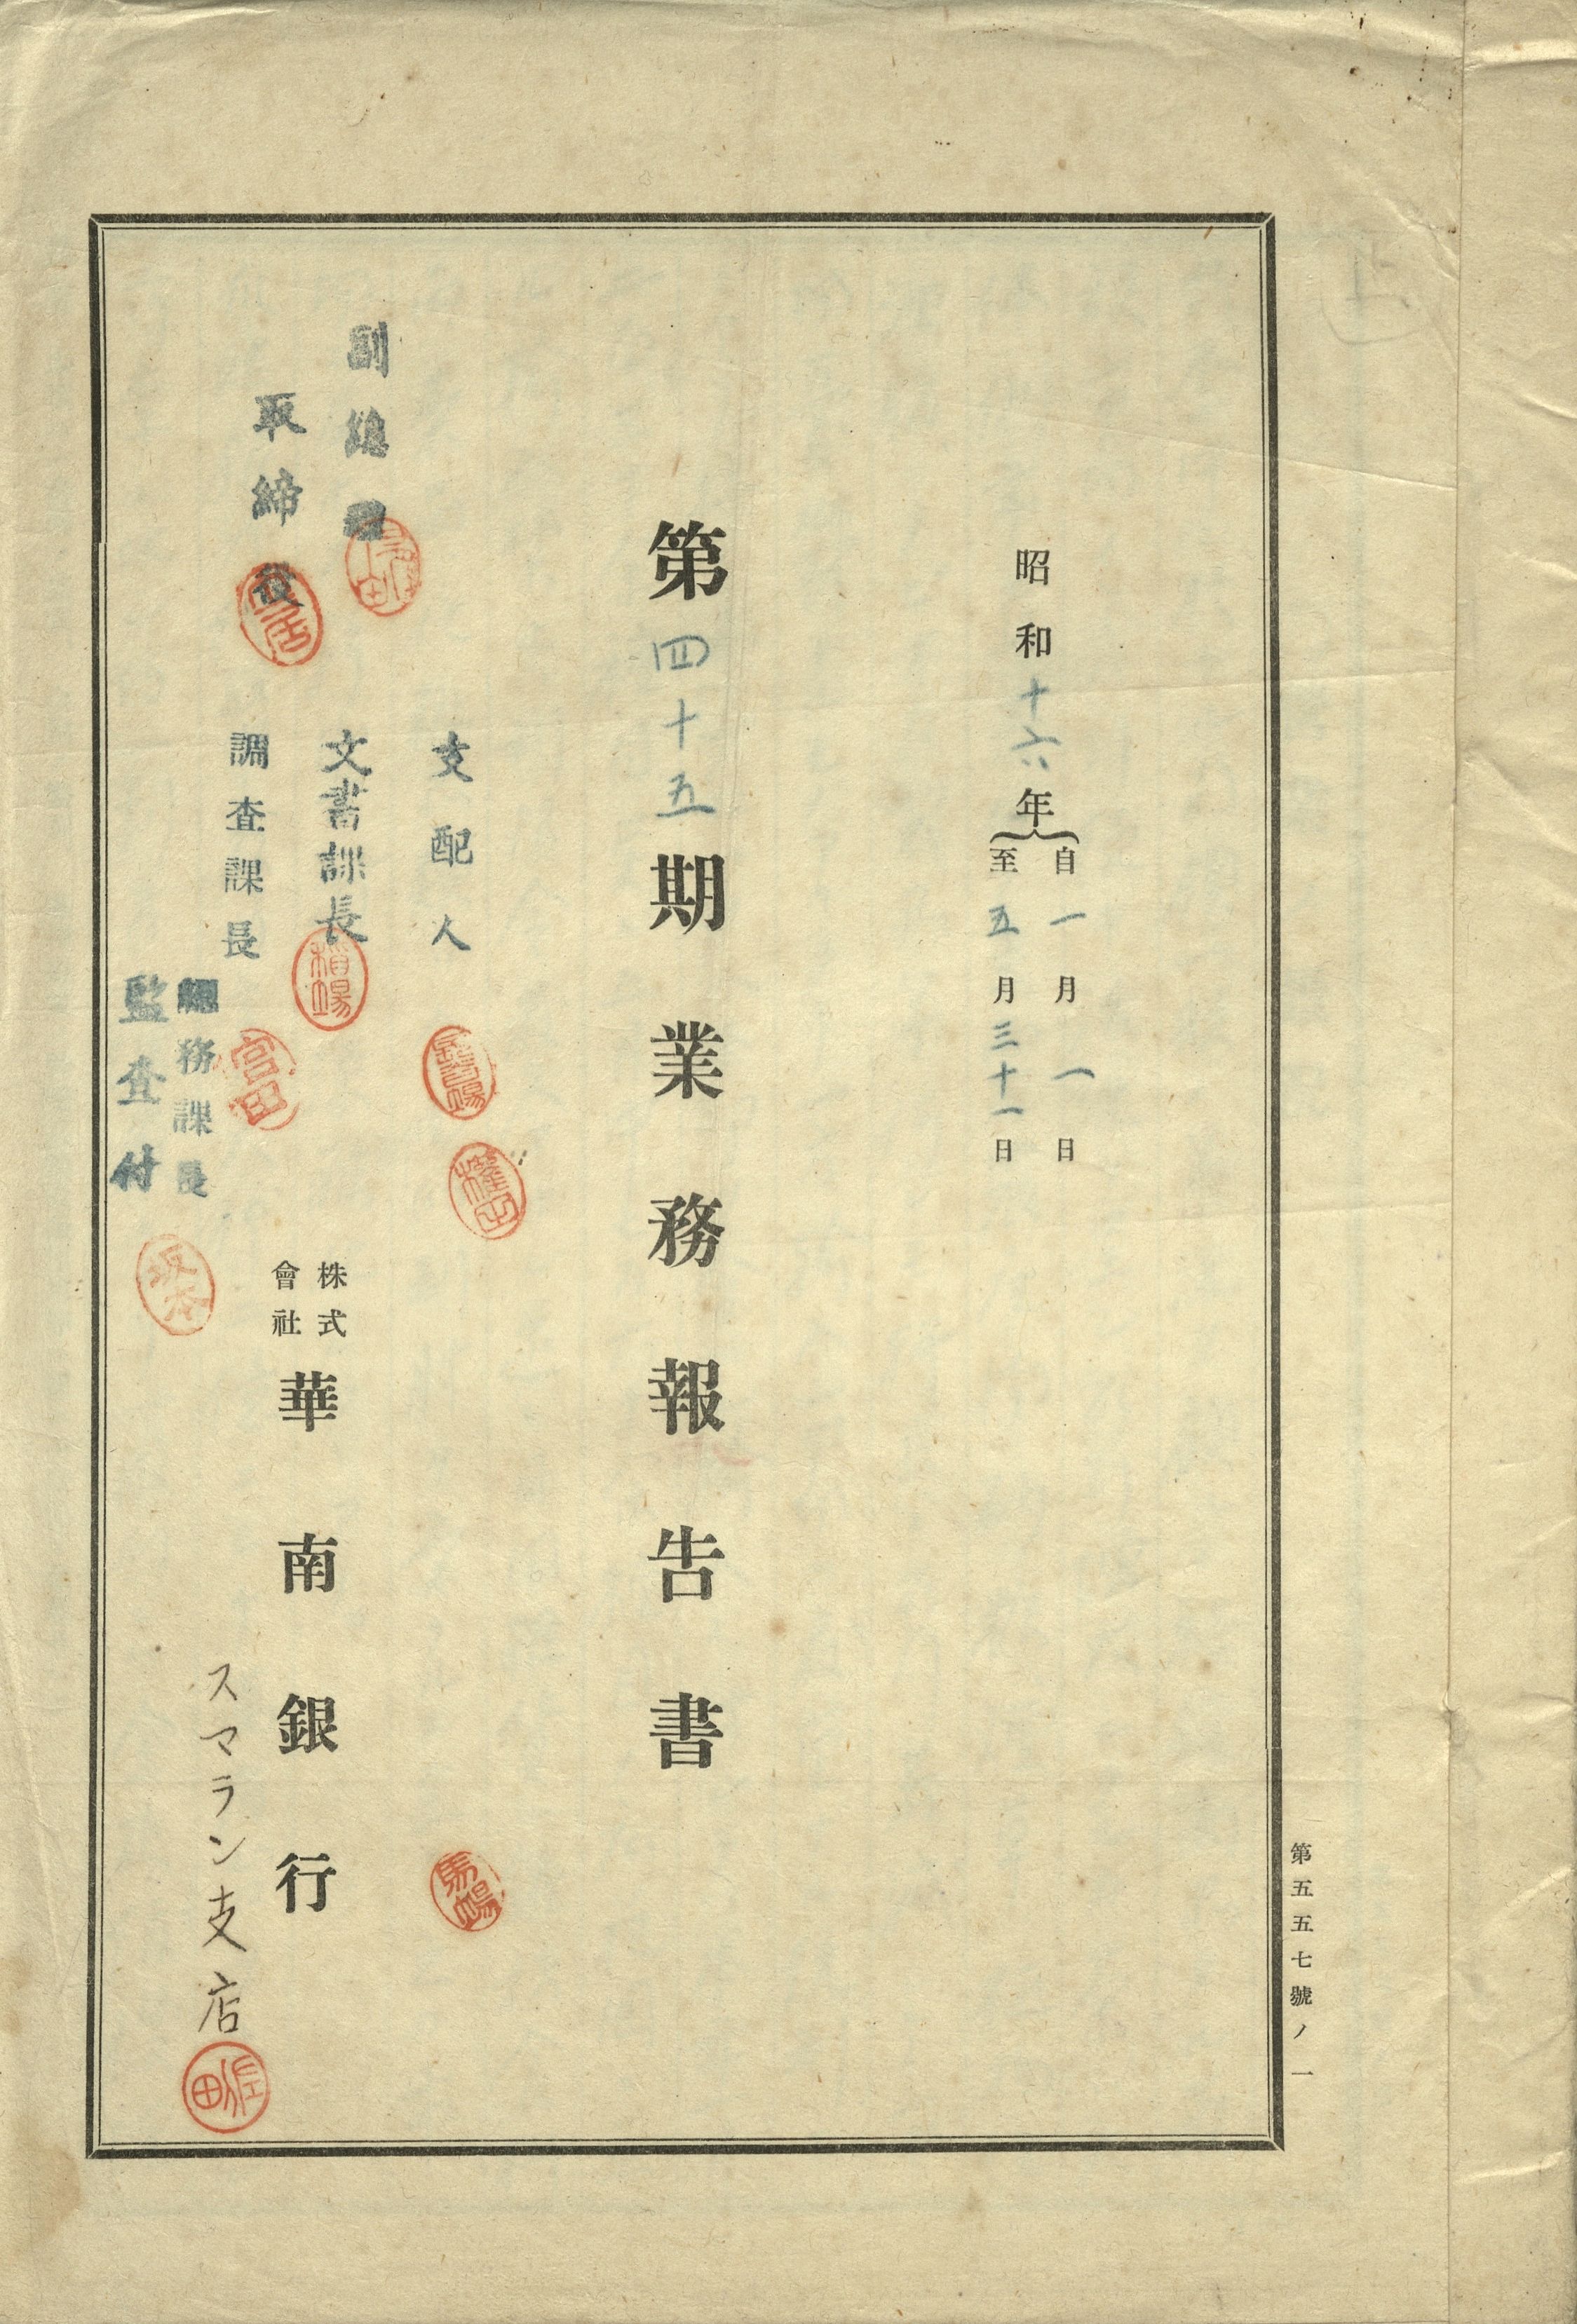 第五五七號ノ一
昭和十六年
自一月一日
至五月三十一日
第四十五期業務報告書
支配人
副總理
文書課長
取締役
調査課長
總務課長
監査付
株式
會社
華南銀行
スマラン支店
稲場
富田
坂本
馬場